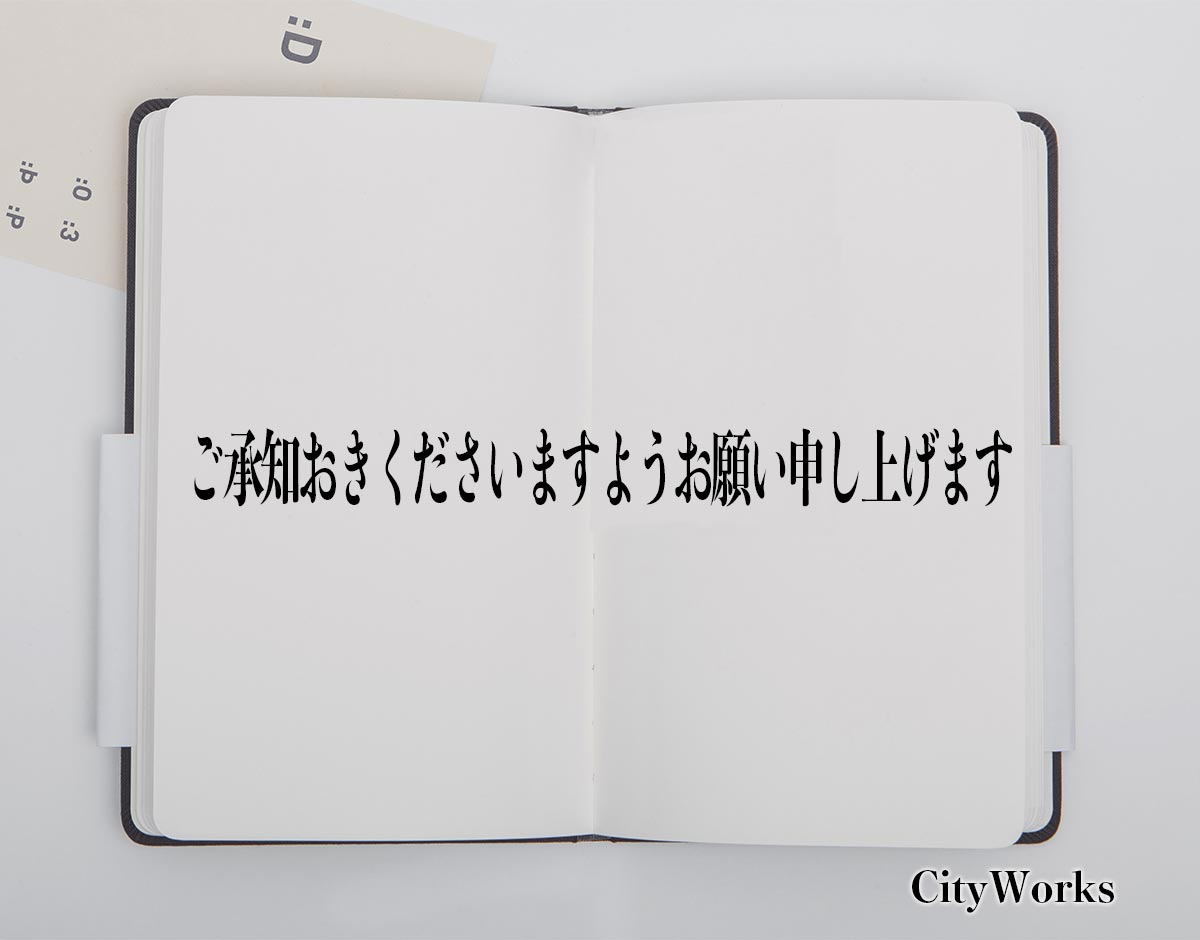 :D
:P
:O
:P
:3
ご承知おきくださいますようお願い申し上げます
CityWorks